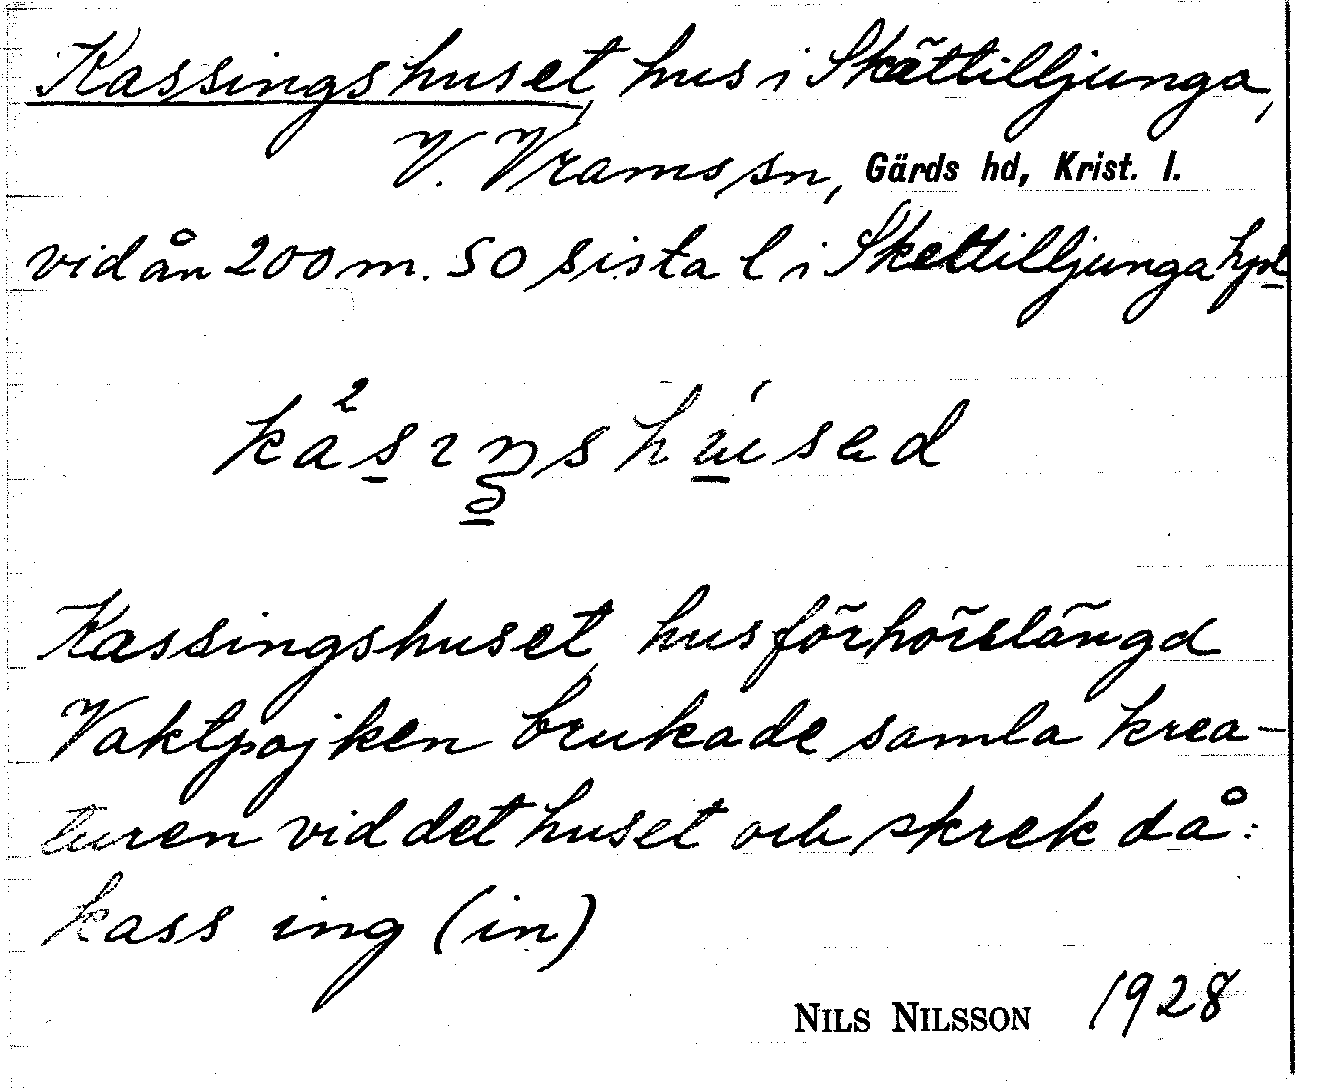 Kassingshuset, hus i Skättilljunga,
V. Vrams sn, Gärds hd, Krist. l.
vid ån 200 m. SO sista l i Skettilljunga hpl
Kassingshuset, husförhörslängd
Vaktpojken brukade samla krea-
turen vid det huset och skrek då:
kass ing (in)
NILS NILSSON 1928